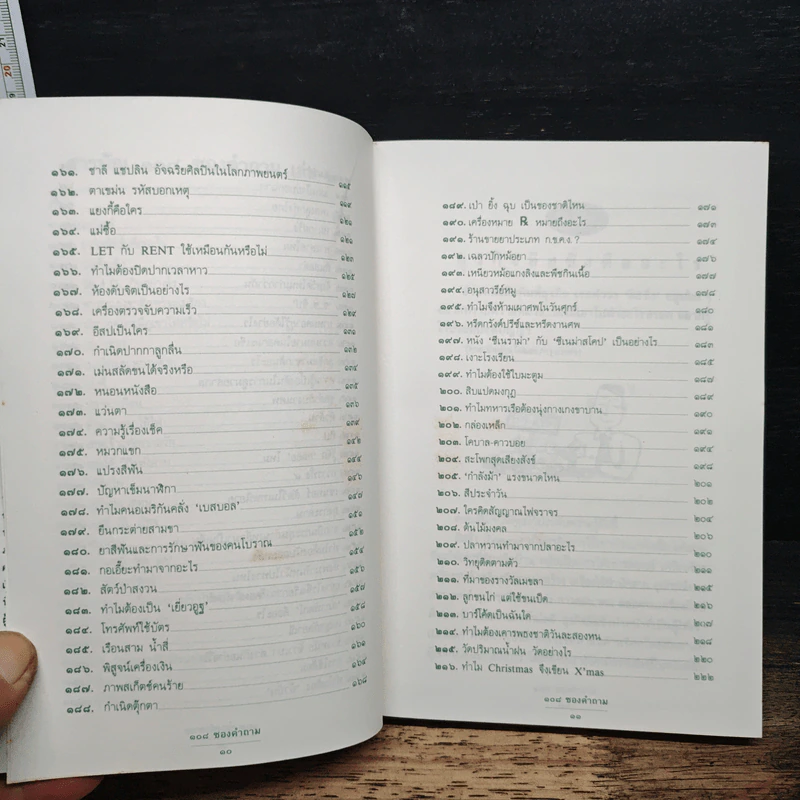 ๑๖๑. ชาลี แชปลิน อัจฉริยศิลปินในโลกภาพยนตร์ ๑๑๕
๑๖๒. ตาเขม่น รหัสบอกเหตุ ๑๑๙
๑๖๓. แยงกี้คือใคร ๑๒๑
๑๖๔. แม่ซื้อ ๑๒๑
๑๖๕. LET กับ RENT ใช้เหมือนกันหรือไม่ ๑๒๓
๑๖๖. ทำไมต้องปิดปากเวลาหาว ๑๒๕
๑๖๗. ห้องดับจิตเป็นอย่างไร
๑๖๘. เครื่องตรวจจับความเร็ว
๑๖๙. อีสปเป็นใคร
๑๗๐. กำเนิดปากกาลูกลื่น ๑๓๒
๑๗๑. เม่นสลัดขนได้จริงหรือ ๑๓๔
๑๗๒. หนอนหนังสือ ๑๓๕
๑๗๓. แว่นตา ๑๓๖
๑๗๔. ความรู้เรื่องเช็ค ๑๓๙
๑๗๕. หมวกแขก ๑๔๒
๑๗๖. แปรงสีฟัน ๑๔๕
๑๗๗. ปัญหาเข็มนาฬิกา ๑๔๗
๑๗๘. ทำไมคนอเมริกันคลั่ง 'เบสบอล' ๑๔๘
๑๗๙. ยืนกระต่ายสามขา ๑๕๑
๑๘๐. ยาสีฟันและการรักษาฟันของคนโบราณ ๑๕๒
๑๘๑. กอเอี๊ยะทำมาจากอะไร ๑๕๔
๑๘๒. สัตว์ป่าสงวน ๑๕๖
๑๘๓. ทำไมต้องเป็น 'เยี่ยวอูฐ' ๑๕๗
๑๘๔. โทรศัพท์ใช้บัตร ๑๕๘
๑๘๕. เรือนสาม น้ำสี่ ๑๖๑
๑๘๖. พิสูจน์เครื่องเงิน ๑๖๔
๑๘๗. ภาพสเก็ตช์คนร้าย ๑๖๘
๑๘๘. กำเนิดตุ๊กตา
๑๐๘ ซองคำถาม
๑๐
๑๘๙. เป่า ยิ้ง ฉุบ เป็นของชาติไหน ๑๗๑
๑๙๐. เครื่องหมาย ℞ หมายถึงอะไร ๑๗๓
๑๙๑. ร้านขายยาประเภท ก.ข.ค.ง. ? ๑๗๔
๑๙๒. เฉลวปักหม้อยา ๑๗๖
๑๙๓. เหนียวหม้อแกงลิงและพืชกินเนื้อ ๑๗๗
๑๙๔. อนุสาวรีย์หมู ๑๗๘
๑๙๕. ทำไมจึงห้ามเผาศพในวันศุกร์ ๑๘๐
๑๙๖. หรีดกรังด์ปรีซ์และหรีดงานศพ ๑๘๑
๑๙๗. หนัง 'ซีเนราม่า' กับ 'ซีเนม่าสโคป' เป็นอย่างไร ๑๘๓
๑๙๘. เงาะโรงเรียน ๑๘๕
๑๙๙. ทำไมต้องใช้ใบมะตูม ๑๘๗
๒๐๐. สิบแปดมงกุฎ ๑๘๙
๒๐๑. ทำไมทหารเรือต้องนุ่งกางเกงขาบาน ๑๙๐
๒๐๒. กล่องเหล็ก ๑๙๑
๒๐๓. โคบาล-คาวบอย ๑๙๔
๒๐๔. สะโพกสุดเสียงสังข์ ๑๙๘
๒๐๕. 'กำลังม้า' แรงขนาดไหน ๒๐๑
๒๐๖. สีประจำวัน ๒๐๒
๒๐๗. ใครคิดสัญญาณไฟจราจร ๒๐๔
๒๐๘. ต้นไม้มงคล ๒๐๖
๒๐๙. ปลาหวานทำมาจากปลาอะไร ๒๑๐
๒๑๐. วิทยุติดตามตัว ๒๑๑
๒๑๑. ที่มาของรางวัลเมขลา ๒๑๕
๒๑๒. ลูกขนไก่ แต่ใช้ขนเป็ด ๒๑๖
๒๑๓. บาร์โค้ดเป็นฉันใด ๒๑๗
๒๑๔. ทำไมต้องเคารพธงชาติวันละสองหน ๒๑๘
๒๑๕. วัดปริมาณน้ำฝน วัดอย่างไร ๒๒๐
๒๑๖. ทำไม Christmas จึงเขียน X'mas ๒๒๒
๑๐๘ ซองคำถาม
๑๑